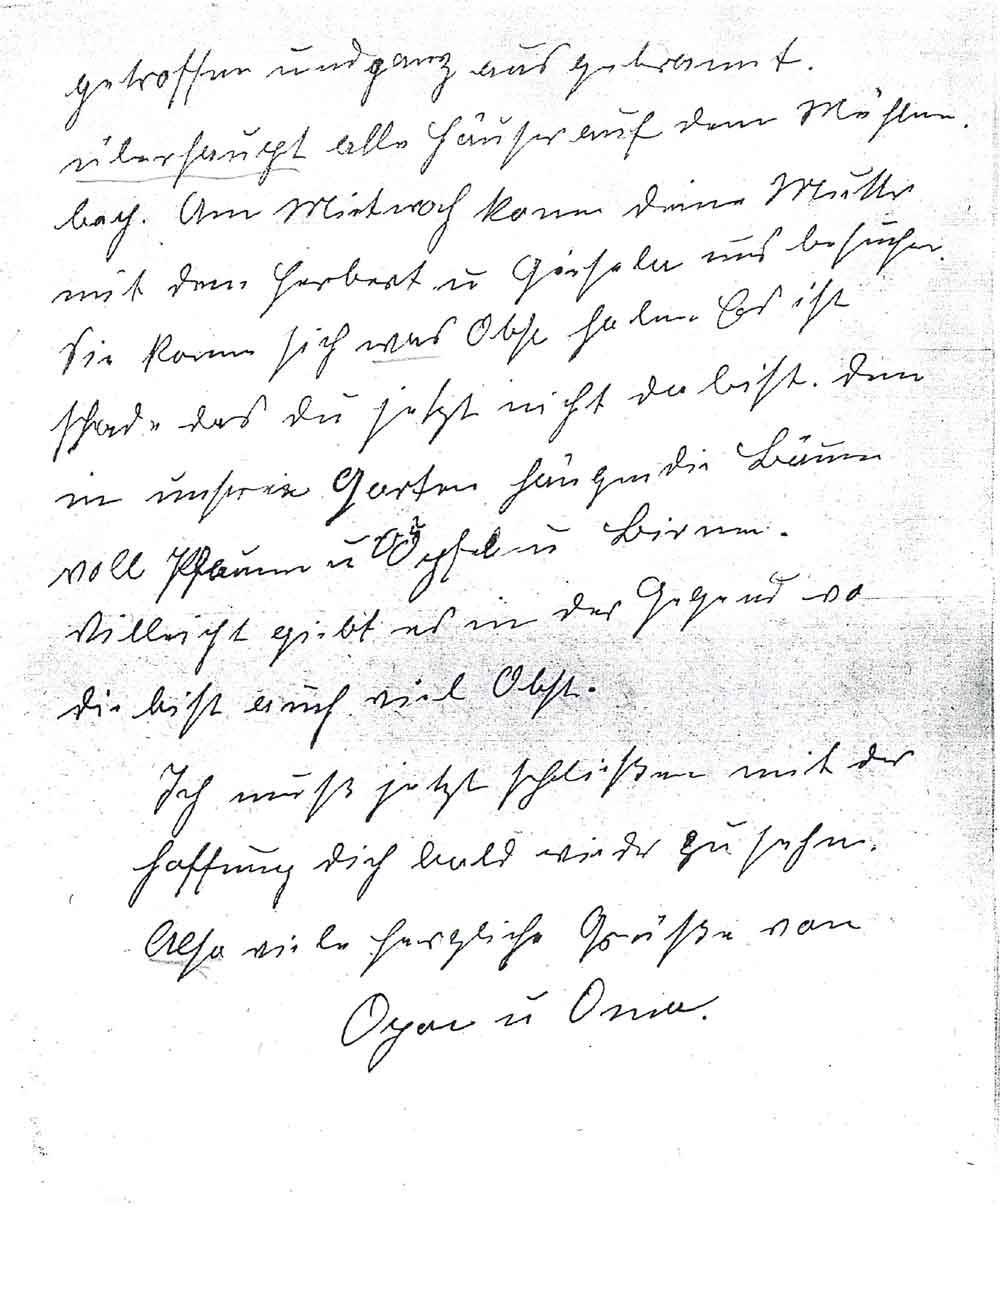 getroffen und ganz ausgebrannt.
überhaupt alle Häuser auf dem Mühlen
bach. Am Mietwoch komm deine Mutter
mit dem Herbert u Giesela uns besuchen.
Sie komm sich was Obst holen. Es ist
schade das du jetzt nicht da bist. den
in unseren Garten hängen die Bäume
voll Pflaumen u Äpfel u Birnen.
Villeicht giebt es in der Gegend wo
du bist auch viel Obst.
Ich muß jetzt schließen mit der
Hoffnung dich bald wieder zu sehn.
Also viele herzliche Grüße von
Opa u Oma.